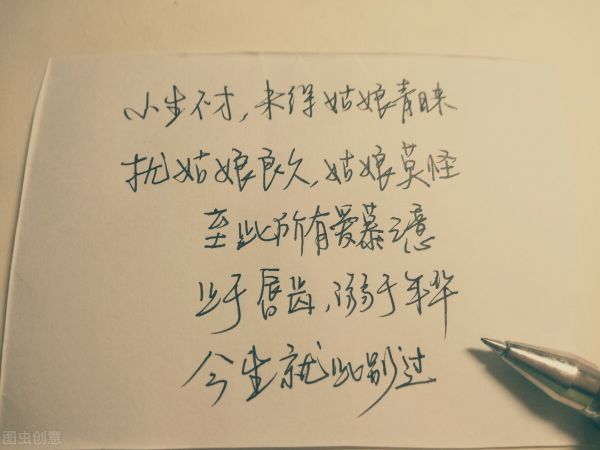 小生不才，未得姑娘青睐
扰姑娘良久，姑娘莫怪
至此所有爱慕之意
止于唇齿，溺于年华
今生就此别过
图虫创意